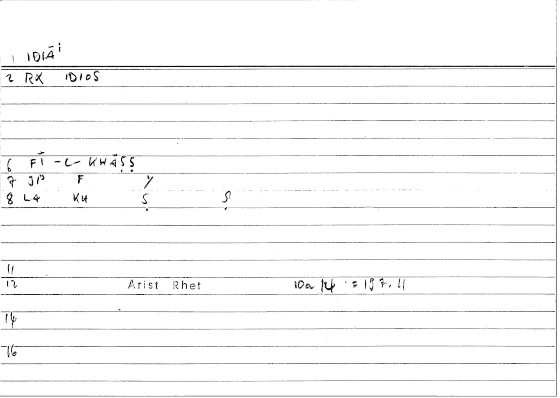 1 IDIĀⁱ
2 RX IDIOS
6 FĪ -L- KHĀṢṢ
7 JP F Y
8 L4 KH Ṣ Ṣ
11
12 Arist Rhet 10a = 197.11
14
16